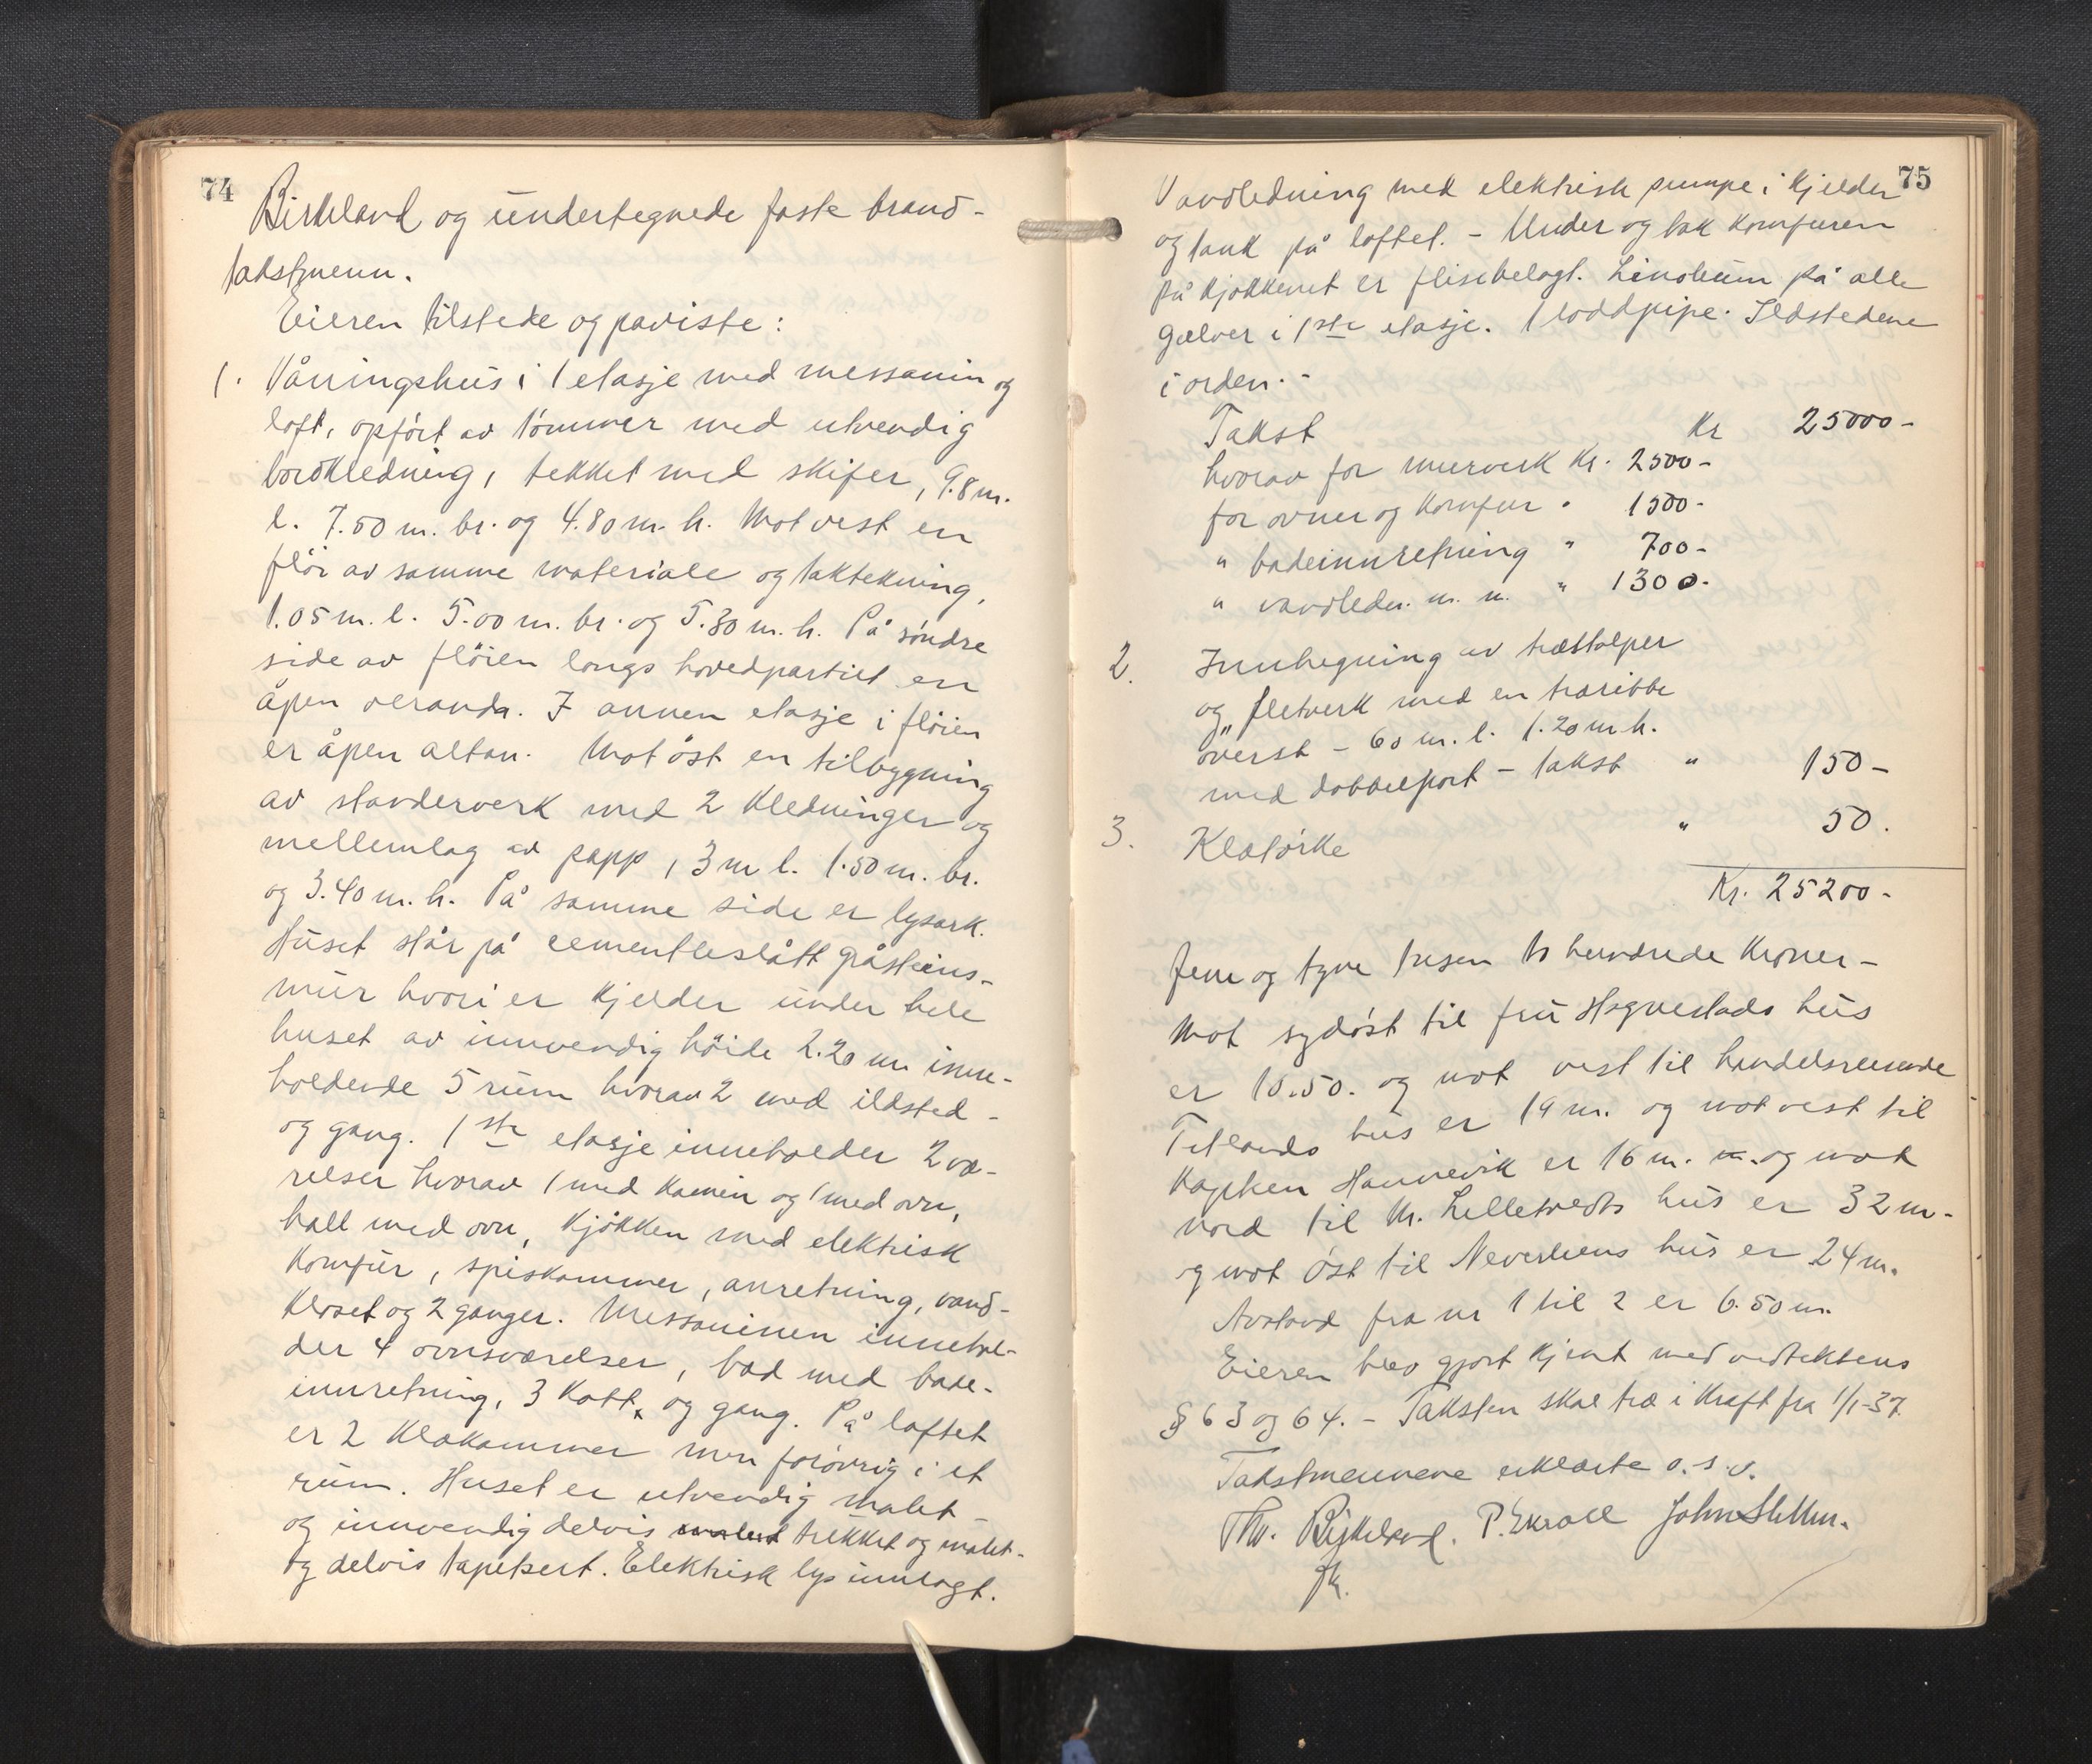 74
Birkeland og undertegnede faste brand-
takstmenn.
Eieren tilstede og paviste:
1. Våningshus i 1 etasje med messanin og
loft, opført av tømmer med utvendig
bordkledning, tekket med skifer, 9.8 m.
l. 7.50 m. br. og 4.80 m. h. Mot vest en
fløi av samme materiale og taktekning,
1.05 m. l. 5.00 m. br. og 5.30 m. h. På søndre
side av fløien langs hovedpartiet en
åpen veranda. I annen etasje i fløien
er åpen altan. Mot øst en tilbygning
av stavderverk med 2 kledninger og
mellemlag av papp, 3 m l. 1.50 m. br.
og 3.40 m. h. På samme side er lysark.
Huset står på cementbeslått gråsteins-
mur hvori er kjelder under hele
huset av innvendig høide 2.20 m inne-
holdende 5 rum hvorav 2 med ildsted -
og gang. 1ste etasje inneholder 2 væ-
relser hvorav 1 med kamin og 1 med ovn,
hall med ovn, kjøkken med elektrisk
komfur, spiskammer, anretning, vand-
kloset og 2 ganger. Messaninen innehol-
der 4 ovnsværelser, bad med bade-
innretning, 3 kott, og gang. På loftet
er 2 klækammer men forøvrig i et
rum. Huset er utvendig malet
og innvendig delvis malet trekket og malet-
og delvis tapetsert. Elektrisk lys innlagt.
75
Vandledning med elektrisk pumpe i kjelder
og tank på loftet. - Under og bak komfuren
på kjøkkenet er flisebelagt. Linoleum på alle
gælver i 1ste etasje. 1 loddpipe. Ildstedene
i orden. -
Takst Kr 25000-
hvorav for murverk Kr. 2500-
for ovner og komfur " 1500-
" badeinnretning " 700-
" vandledn. m. m. " 1300-
2. Innhegning av træstolper
og fletverk med en træribbe
øverst - 60 m. l. 1.20 m h.
med dobbelport - takst " 150-
3. Kletørke " 50.
Kr. 25200-
Fem og tyve tusen to hundrede kroner -
Mot sydøst til fru Hognestads hus
er 10.50. og mot vest til handelsreisende
Tetlands hus er 19 m. og mot vest til
Kaptken Hannevik er 16 m. m. og mot
nord til M. Lilletvedts hus er 32 m.
og mot Øst til Neverliens hus er 24 m.
Avstand fra nr 1 til 2 er 6.50 m.
Eieren blev gjort kjent med vedtektens
§ 63 og 64. - Taksten skal træ i kraft fra 1/1-37.
Takstmennene erklærte o. s. v.
Th. Birkeland. P. Ekroll John Sletten.